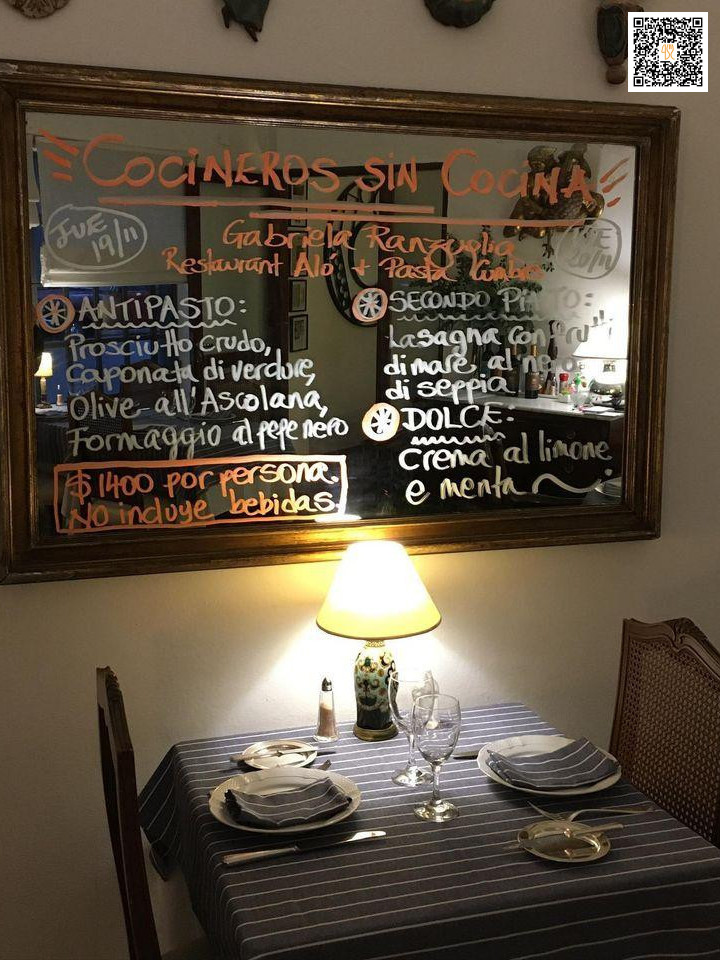 COCINEROS SIN COCINA
JUE
19/11
Gabriela Ranzuglia
20/11
Restaurant Aló + Pasta Cumbre
ANTIPASTO:
Prosciutto crudo,
caponata di verdure,
Olive all'Ascolana,
Formaggio al pepe nero
$1400 por persona.
No incluye bebidas.
SECONDO PIATTO:
Lasagna con fru
di mare al nero
di seppia
DOLCE:
crema al limone
e menta